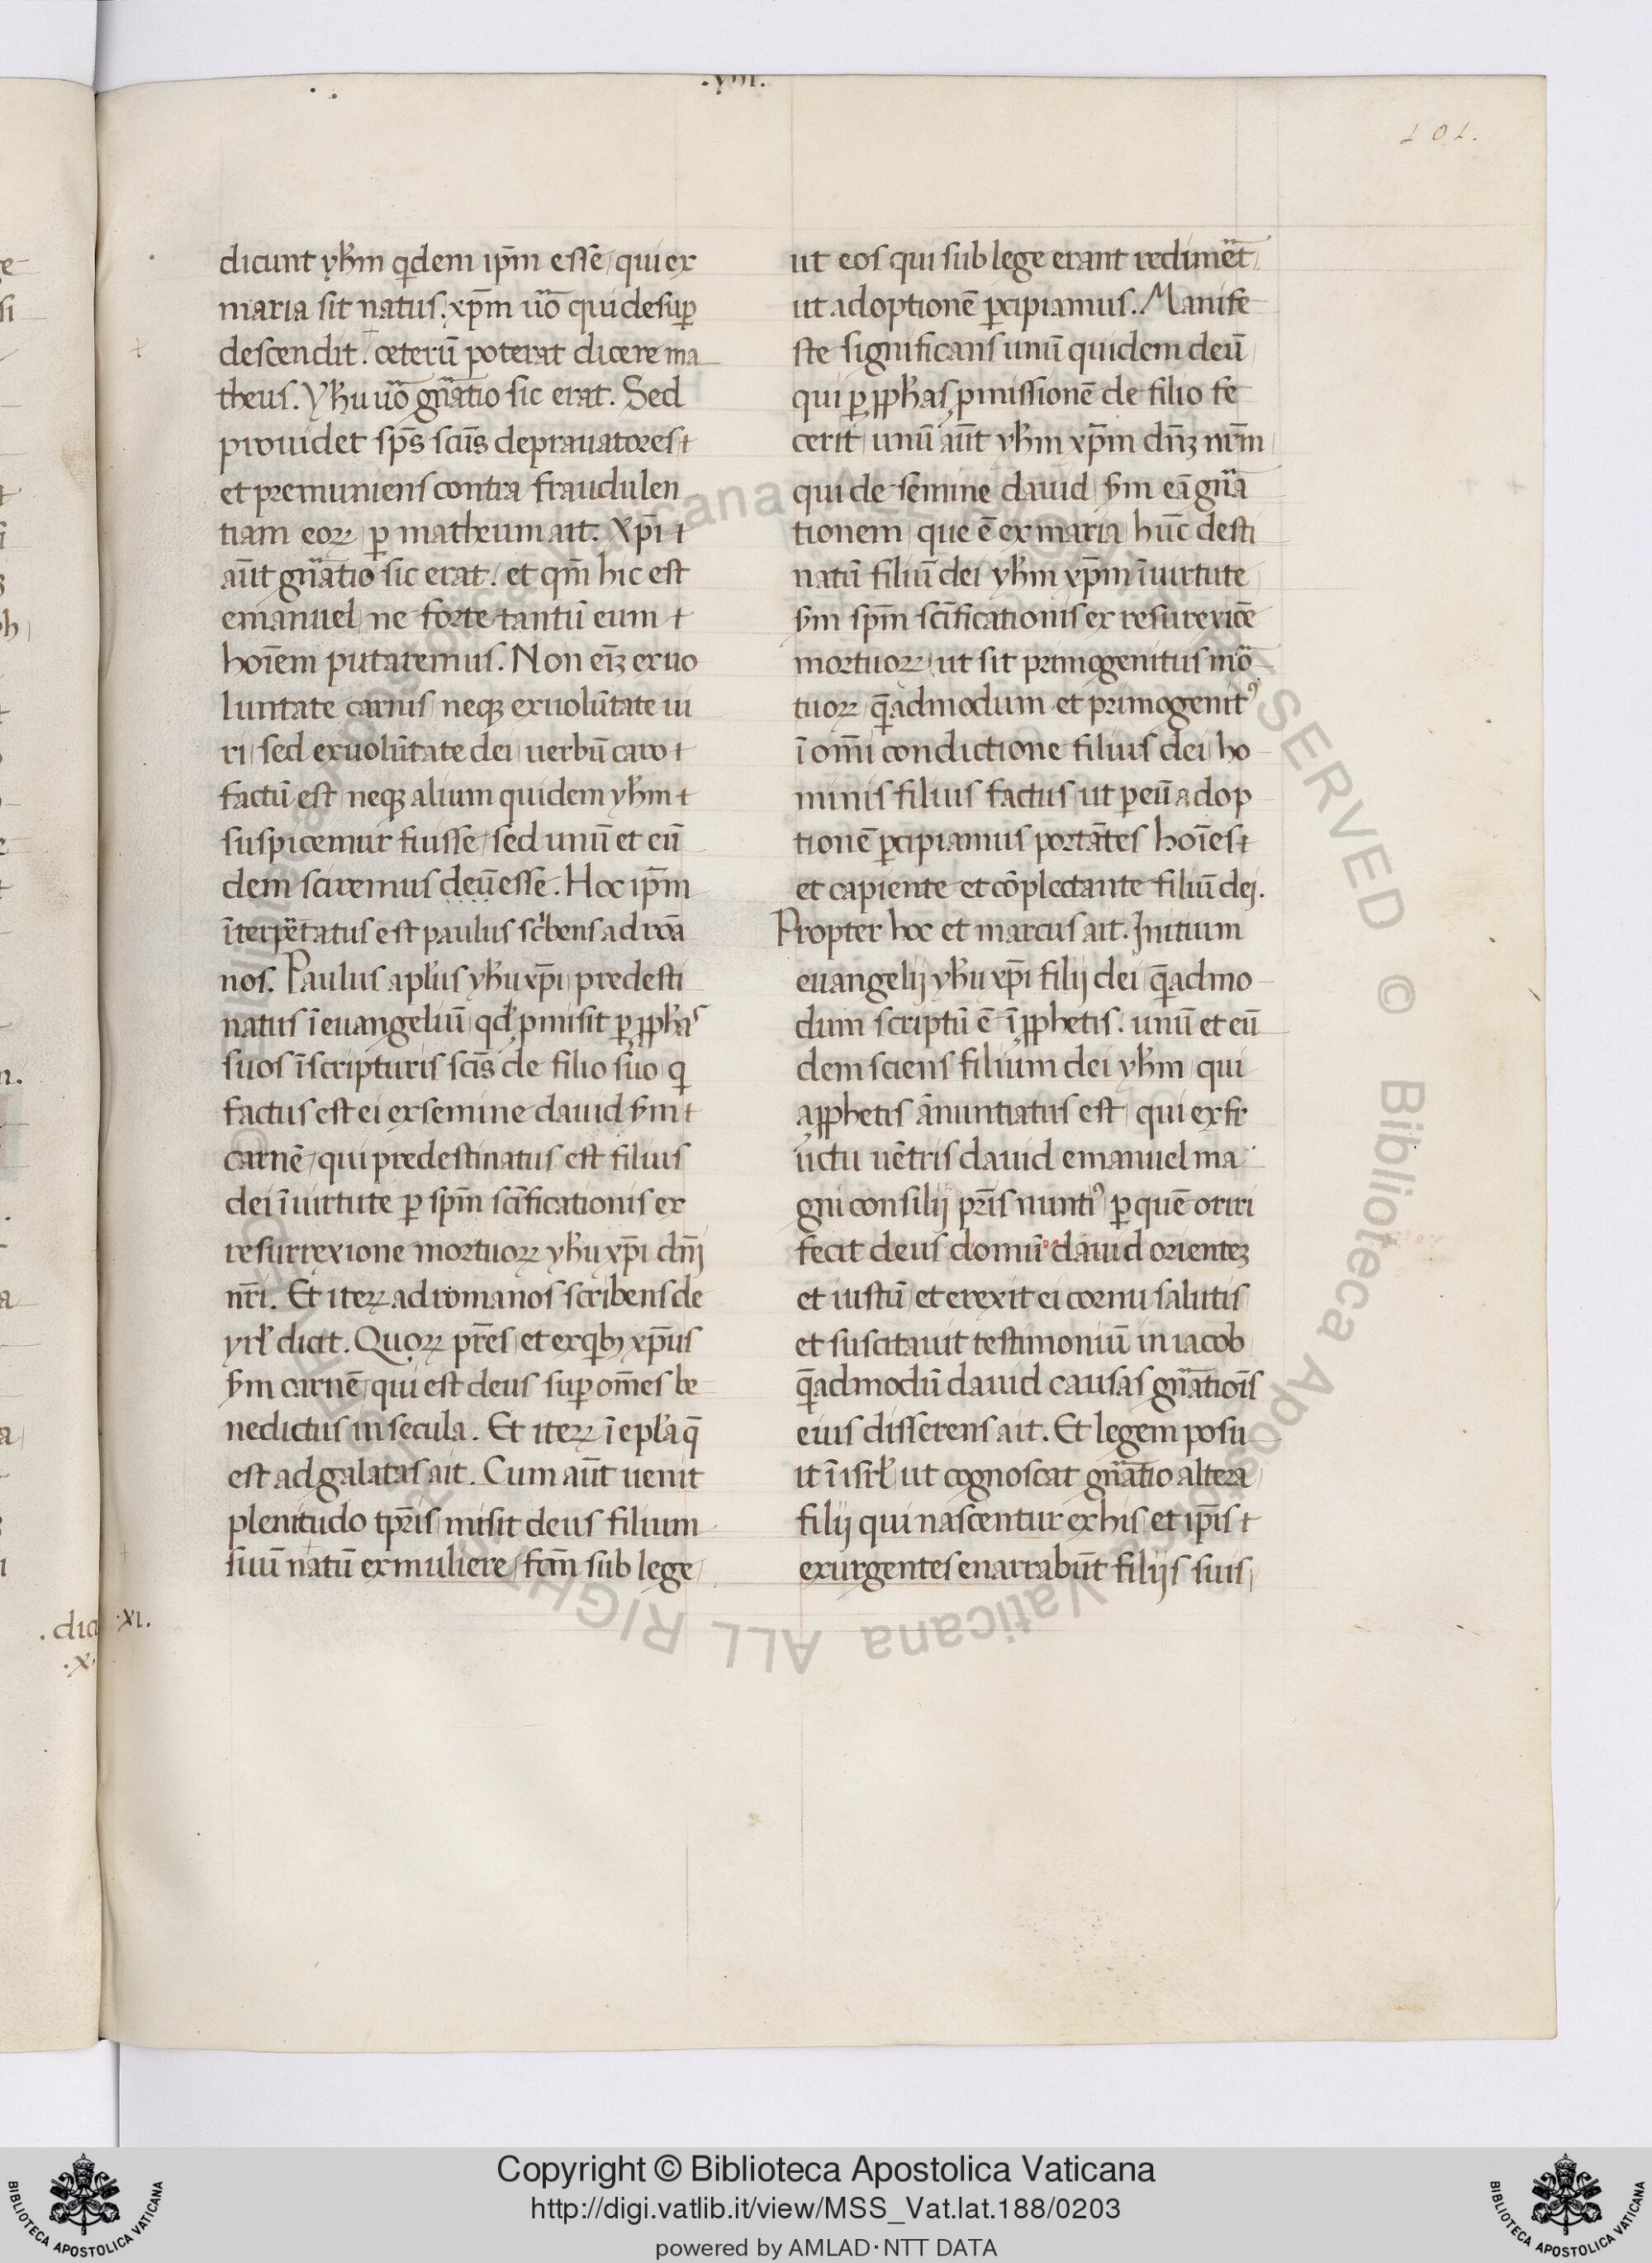 .viii.
101.
dicunt yh̄m qͥdem ip̄m esse, qui ex
maria sit natus. xp̄m uͦo qui desuꝑ
descendit. ceterū poterat dicere ma
theus. Yh̄u uͦo gn̄atio sic erat. Sed
prouidet sp̄s sc̄us deprauatores
et premuniens contra fraudulen
tiam eoꝝ ꝑ matheum ait. Xp̄i
aūt gn̄atio sic erat. et qm̄ hic est
emanuel, ne forte tantū eum
hoīem putaremus. Non eīꝫ ex uo
luntate carnis, neqꝫ ex uolūtate ui
ri, sed ex uolūtate dei, uerbū caro
factū est, neqꝫ alium quidem yh̄m
suspicemur fuisse, sed unū et eū
dem sciremus deū esse. Hoc ip̄m
īterp̄tatus est paulus sc̍bens ad roā
nos. Paulus apl̄us yh̄u xp̄i, predesti
natus ī euangeliū, qd̄ ꝓmisit ꝑ ꝓph̄as
suos ī scripturis scīs de filio suo qͥ
factus est ei ex semine dauid s̄m
carnē, qui predestinatus est filius
dei ī uirtute ꝑ sp̄m scīficationis ex
resurrexione mortuoꝝ yh̄u xp̄i dn̄j
nr̄i. Et iteꝝ ad romanos scribens de
yrl̄ dicit. Quoꝝ pr̄es, et ex qͥbꝫ xp̄us
s̄m carnē, qui est deus suꝑ om̄es be
nedictus in secula. Et iteꝝ ī epl̄a q̄
est ad galatas ait. Cum aūt uenit
plenitudo tp̄ris, misit deus filium
suū natū ex muliere, fcm̄ sub lege,
ut eos qui sub lege erant redim̄et,
ut adoptionē ꝑcipiamus. Manife
ste significans unū quidem deū,
qui ꝑ ꝓph̄as ꝓmissionē de filio fe
cerit, unū aūt yh̄m xp̄m dn̄ꝫ nr̄m
qui de semine dauid, s̄m eā gn̄a
tionem, que ē ex maria, hūc desti
natū filiū dei yh̄m xp̄m ī uirtute
s̄m sp̄m scīficationis ex resurexiōe
mortuoꝝ, ut sit primogenitus mō
tuoꝝ, q̄admodum et primogenitꝰ
ī om̄i condictione, filius dei, ho
minis filius factus, ut ꝑ eū adop
tionē ꝑcipiamus portātes hoīes
et capiente et cōplectante filiū dei.
Propter hoc et marcus ait. Initium
euangelij yh̄u xp̄i filij dei, q̄admo
dum scriptū ē ī ꝓphetis. unū et eū
dem sciens filium dei yh̄m, qui
a ꝓphetis ānuntiatus est, qui ex fr
uctu uētris dauid emanuel ma
gni consilij pr̄is nuntiꝰ, ꝑ quē oriri
fecit deus domū dauid orientēꝫ
et iustū, et erexit ei cornu salutis
et suscitauit testimoniū in iacob
q̄admodū dauid causas gn̄atiois
eius disserens ait. Et legem posu
it ī isrl̄, ut cognoscat gn̄atio altera,
filij qui nascentur ex his, et ip̄is
exurgentes enarrabūt filijs suis,
.XI.
Copyright © Biblioteca Apostolica Vaticana
http://digi.vatlib.it/view/MSS_Vat.lat.188/0203
powered by AMLAD·NTT DATA
BIBLIOTECA APOSTOLICA VATICANA
BIBLIOTECA APOSTOLICA VATICANA